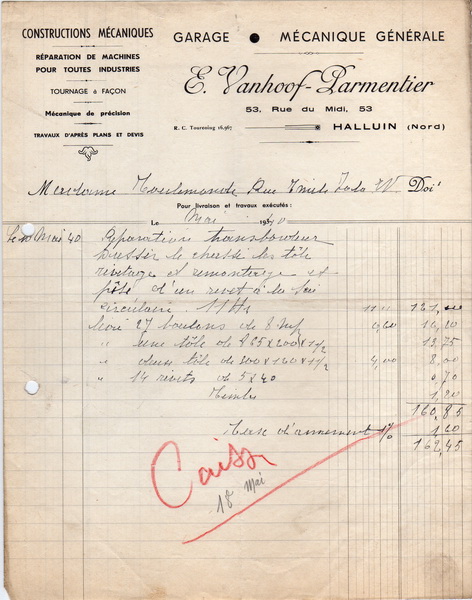 CONSTRUCTIONS MÉCANIQUES
RÉPARATION DE MACHINES
POUR TOUTES INDUSTRIES
TOURNAGE à FAÇON
Mécanique de précision
TRAVAUX D'APRÈS PLANS ET DEVIS
GARAGE MÉCANIQUE GÉNÉRALE
E. Vanhoof-Parmentier
53, Rue du Midi, 53
R. C. Tourcoing 16.967
HALLUIN (Nord)
Madame Toulemonde Rue Emile Zola Doit
Pour livraison et travaux exécutés:
Le Mai 1940
Le Mai 40 Réparation transbordeur
dresser le chassis les tôle
rivetage et remontage et
d'un rivet à la
circulaire. 11 Hs 11,00 121,00
27 boulons de 8 0,60 16,20
" une tôle de 865 x 200 x 1 1/2 12,75
" deux tôle de 300 x 160 x 1 1/2 4,00 8,00
" 14 rivets de 5 x 40 0,70
1,20
160,85
Taxe d'armement 1% 1,60
162,45
Caisse
18 Mai